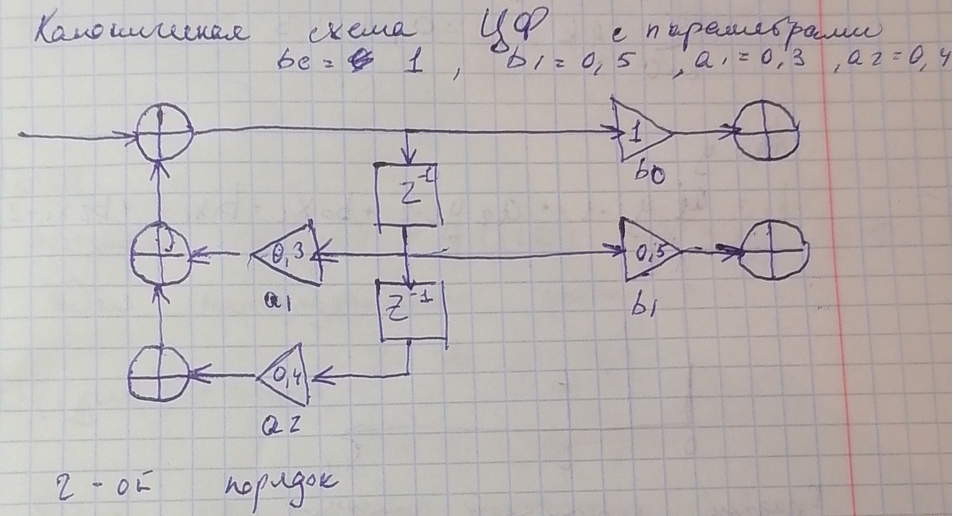 Каноническая схема ЦФ с параметрами
b0 = 1, b1 = 0,5, a1 = 0,3, a2 = 0,4
1
b0
Z⁻¹
0,3
a1
0,5
b1
Z⁻¹
0,4
a2
2-ой порядок